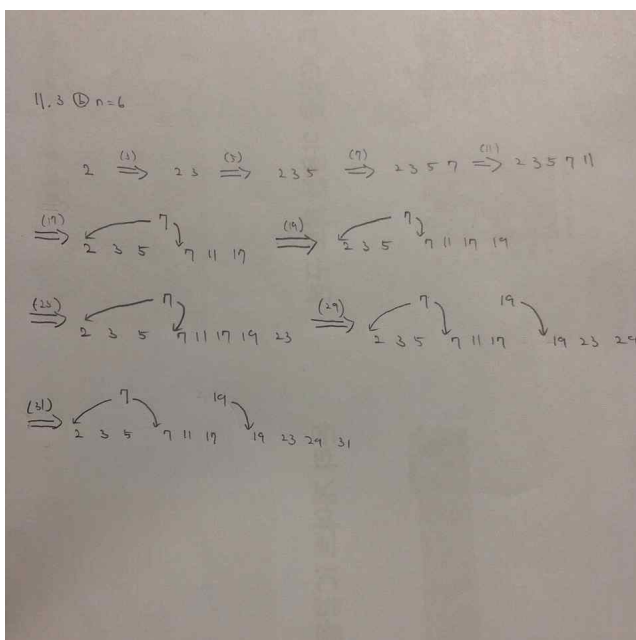 11.3 ⓑ n=6
2 (3) ⇒ 2 3 (5) ⇒ 2 3 5 (7) ⇒ 2 3 5 7 (11) ⇒ 2 3 5 7 11
(17) ⇒ 7 (19) ⇒ 7
2 3 5 7 11 17 2 3 5 7 11 17 19
(23) ⇒ 7 (29) ⇒ 7 19
2 3 5 7 11 17 19 23 2 3 5 7 11 17 19 23 29
(31) ⇒ 7 19
2 3 5 7 11 17 19 23 29 31